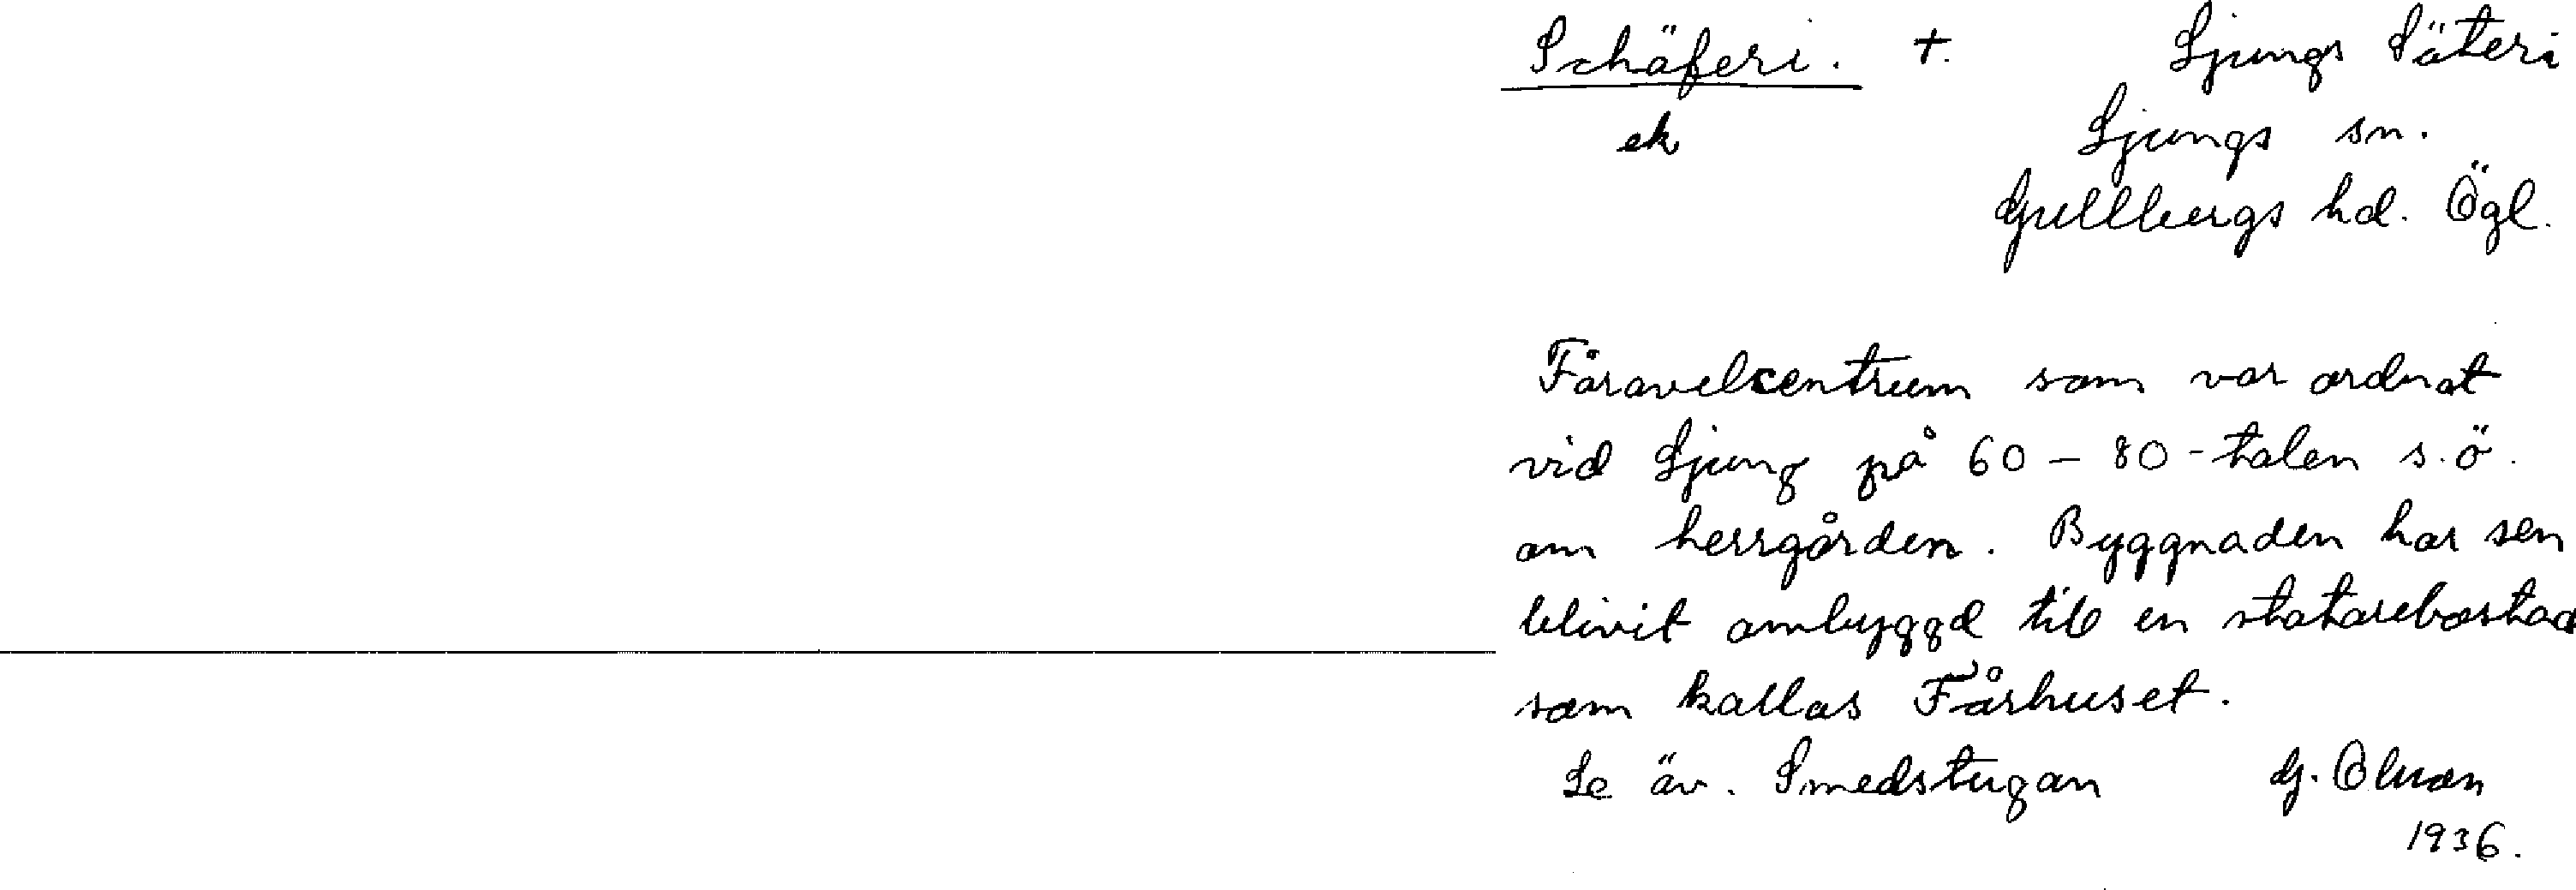 Schäferi. +. Ljungs Säteri
ek Ljungs sn.
Gullbergs hd. Ögl.
Fåravelcentrum som var ordnat
vid Ljung på 60 - 80 - talen s.ö.
om herrgården. Byggnaden har sen
blivit ombyggd till en statarebostad
som kallas Fårhuset.
Se äv. Smedstugan G. Olsson
1936.